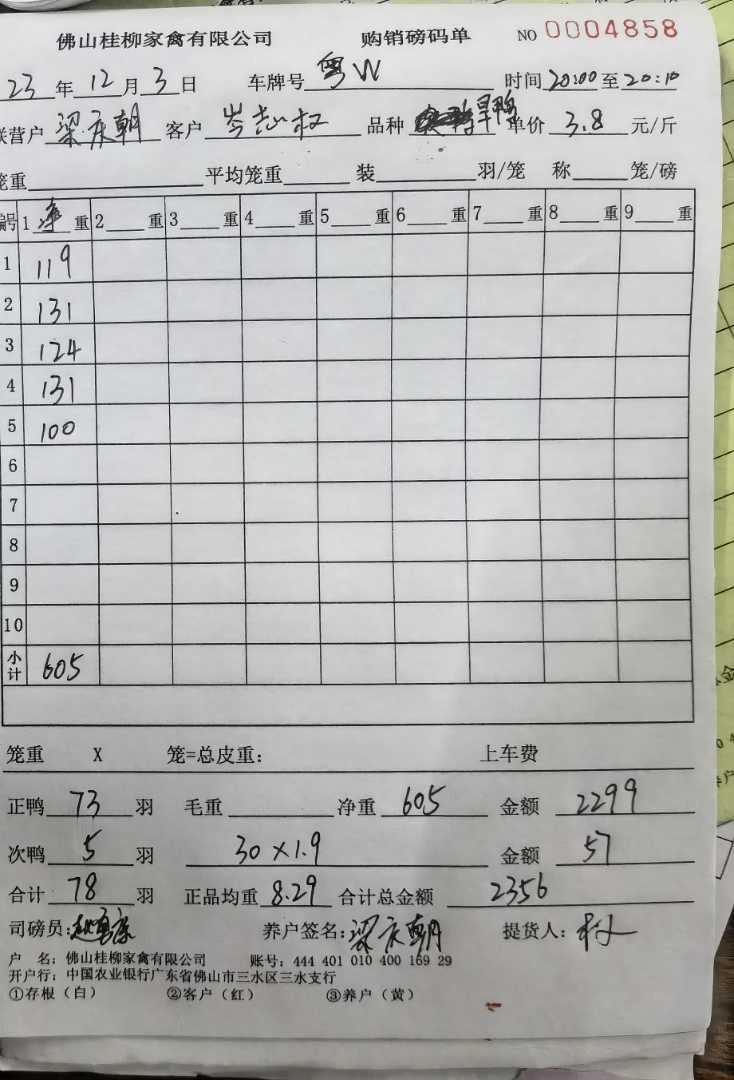 佛山桂柳家禽有限公司 购销磅码单 NO 0004858
23年12月3日 车牌号 粤W 时间20:00至20:10
联营户 梁庆朝 客户 岑志权 品种 旱鸭 单价 3.8 元/斤
笼重 平均笼重 装 羽/笼 称 笼/磅
编号 1 净 重 2 重 3 重 4 重 5 重 6 重 7 重 8 重 9 重
1 119
2 131
3 124
4 131
5 100
6
7
8
9
10
小计 605
笼重 X 笼=总皮重: 上车费
正鸭 73 羽 毛重 净重 605 金额 2299
次鸭 5 羽 30×1.9 金额 57
合计 78 羽 正品均重 8.29 合计总金额 2356
司磅员: 养户签名: 梁庆朝 提货人: 权
户 名: 佛山桂柳家禽有限公司 账号: 444 401 010 400 169 29
开户行: 中国农业银行广东省佛山市三水区三水支行
①存根(白) ②客户(红) ③养户(黄)